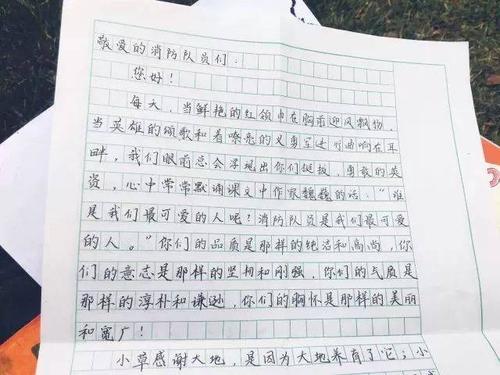 敬爱的消防队员们:
您好!
每天,当鲜艳的红领巾在胸前迎风飘扬,
当英雄的颂歌和着嘹亮的义勇军进行曲响在耳
畔,我们眼前总会浮现出你们挺拔、勇敢的英
姿,心中常常默诵课文中作家魏巍的话:“谁
是我们最可爱的人呢?消防队员是我们最可爱
的人。”你们的品质是那样的纯洁和高尚,你
们的意志是那样的坚韧和刚强,你们的气质是
那样的淳朴和谦逊,你们的胸怀是那样的美丽
和宽广!
小草感谢大地,是因为大地养育了它;小